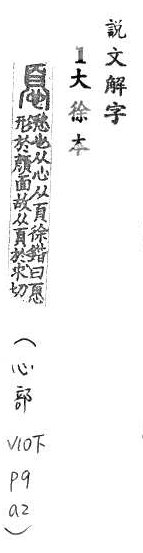 說文解字
1大徐本
𢝊愁也从心从頁徐鍇曰𢝊
形於顏面故从頁於求切
(心部
V10下
p9
a2)